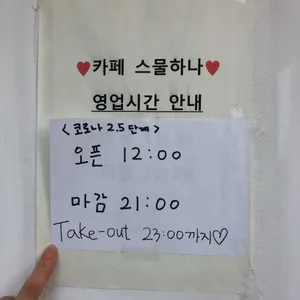 ♥카페 스물하나♥
영업시간 안내
<코로나 2.5단계>
오픈 12:00
마감 21:00
Take-out 23:00까지♡